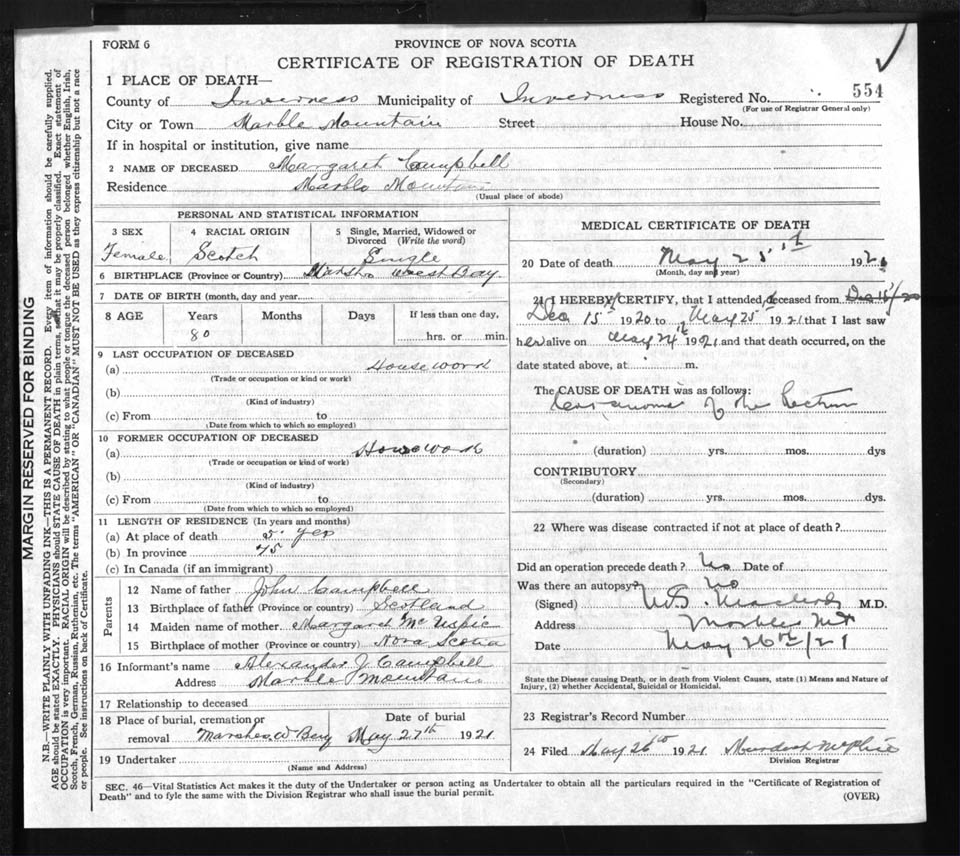 FORM 6
PROVINCE OF NOVA SCOTIA
CERTIFICATE OF REGISTRATION OF DEATH
1 PLACE OF DEATH—
554
County of Inverness Municipality of Inverness Registered No.
(For use of Registrar General only)
City or Town Marble Mountain Street House No.
If in hospital or institution, give name
2 NAME OF DECEASED Margaret Campbell
Residence Marble Mountain
(Usual place of abode)
PERSONAL AND STATISTICAL INFORMATION
3 SEX 4 RACIAL ORIGIN 5 Single, Married, Widowed or Divorced (Write the word)
Female Scotch Single
6 BIRTHPLACE (Province or Country) West Bay
7 DATE OF BIRTH (month, day and year)
8 AGE Years Months Days If less than one day,
80 hrs. or min.
9 LAST OCCUPATION OF DECEASED
(a) House work
(Trade or occupation or kind or work)
(b)
(Kind of industry)
(c) From to
(Date from which to which so employed)
10 FORMER OCCUPATION OF DECEASED
(a) Housework
(Trade or occupation or kind of work)
(b)
(Kind of industry)
(c) From to
(Date from which to which so employed)
11 LENGTH OF RESIDENCE (In years and months)
(a) At place of death 5
(b) In province 75
(c) In Canada (if an immigrant)
Parents
12 Name of father John Campbell
13 Birthplace of father (Province or country) Scotland
14 Maiden name of mother Margaret
15 Birthplace of mother (Province or country) Nova Scotia
16 Informant's name Alexander J Campbell
Address Marble Mountain
17 Relationship to deceased
18 Place of burial, cremation or removal Date of burial
May 27th 1921
19 Undertaker
(Name and Address)
MEDICAL CERTIFICATE OF DEATH
20 Date of death May 25th 1921
(Month, day and year)
21 I HEREBY CERTIFY, that I attended deceased from Dec 15/20
Dec 15th 1920 to May 25th 1921 that I last saw
her alive on May 24th 1921 and that death occurred, on the
date stated above, at m.
The CAUSE OF DEATH was as follows:
Carcinoma of the Rectum
(duration) yrs. mos. dys
CONTRIBUTORY
(Secondary)
(duration) yrs. mos. dys.
22 Where was disease contracted if not at place of death?
Did an operation precede death? No Date of
Was there an autopsy? No
(Signed) M.D.
Address Marble Mt
Date May 26th/21
State the Disease causing Death, or in death from Violent Causes, state (1) Means and Nature of
Injury, (2) whether Accidental, Suicidal or Homicidal.
23 Registrar's Record Number
24 Filed May 26th 1921 Murdoch
Division Registrar
SEC. 46—Vital Statistics Act makes it the duty of the Undertaker or person acting as Undertaker to obtain all the particulars required in the "Certificate of Registration of
Death" and to fyle the same with the Division Registrar who shall issue the burial permit.
(OVER)
MARGIN RESERVED FOR BINDING
N.B.—WRITE PLAINLY WITH UNFADING INK—THIS IS A PERMANENT RECORD. Every item of information should be carefully supplied.
AGE should be stated EXACTLY. PHYSICIANS should STATE CAUSE OF DEATH in plain terms, so that it may be properly classified. Exact statement of
OCCUPATION is very important. RACIAL ORIGIN will be described by stating to what people or tongue the deceased person belonged whether English, Irish,
Scotch, French, German, Russian, Ruthenian, etc. The terms "AMERICAN" OR "CANADIAN" MUST NOT BE USED as they express citizenship but not a race
or people. See instructions on back of Certificate.